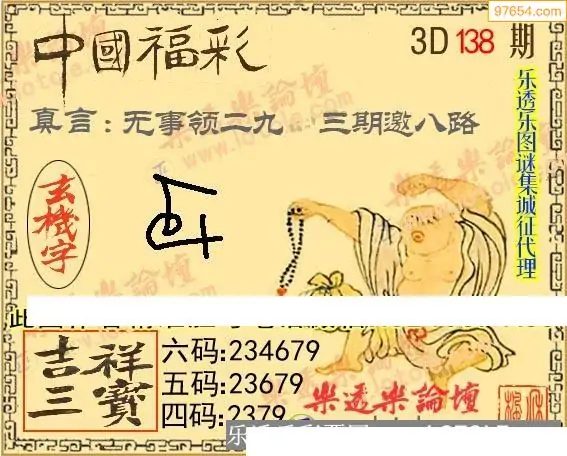 97654.com
中國福彩
3D 138 期
真言：无事领二九 三期邀八路
乐透乐图谜集城征代理
玄機字
吉祥三寶
六码:234679
五码:23679
四码:2379
樂透樂論壇